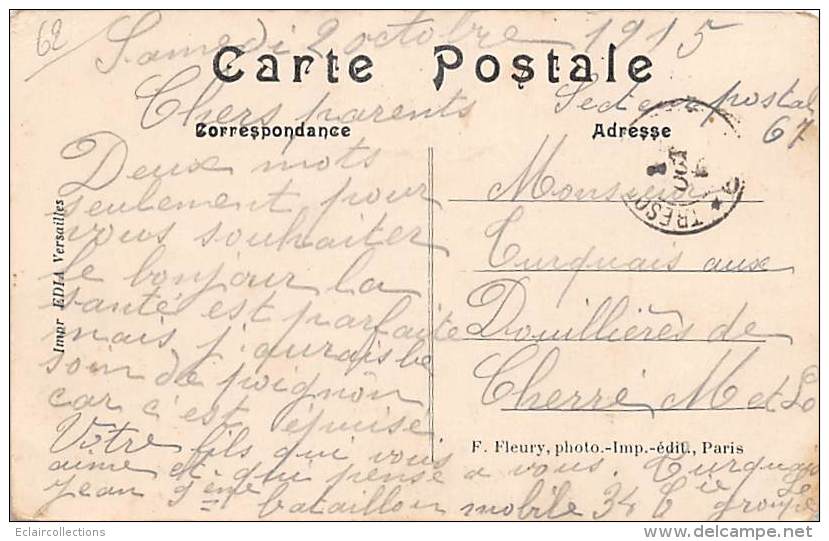 62
Samedi 2 octobre 1915
Carte Postale
Chers parents
Secteur postal
67
Correspondance
Adresse
Deux mots
seulement pour
vous souhaiter
le bonjour la
santé est parfaite
mais j'aurais be
soin de poignon
car c'est épuisé
Votre fils qui vous
aime et qui pense a vous. Turquais
Jean 9eme bataillon mobile 34 Cie groupe
Monsieur
Turquais aux
Douillières de
Cherré M et Lo
TRESOR
OCT
Impr EDIA Versailles
F. Fleury, photo.-Imp.-édit., Paris
Eclaircollections
www.delcampe.net